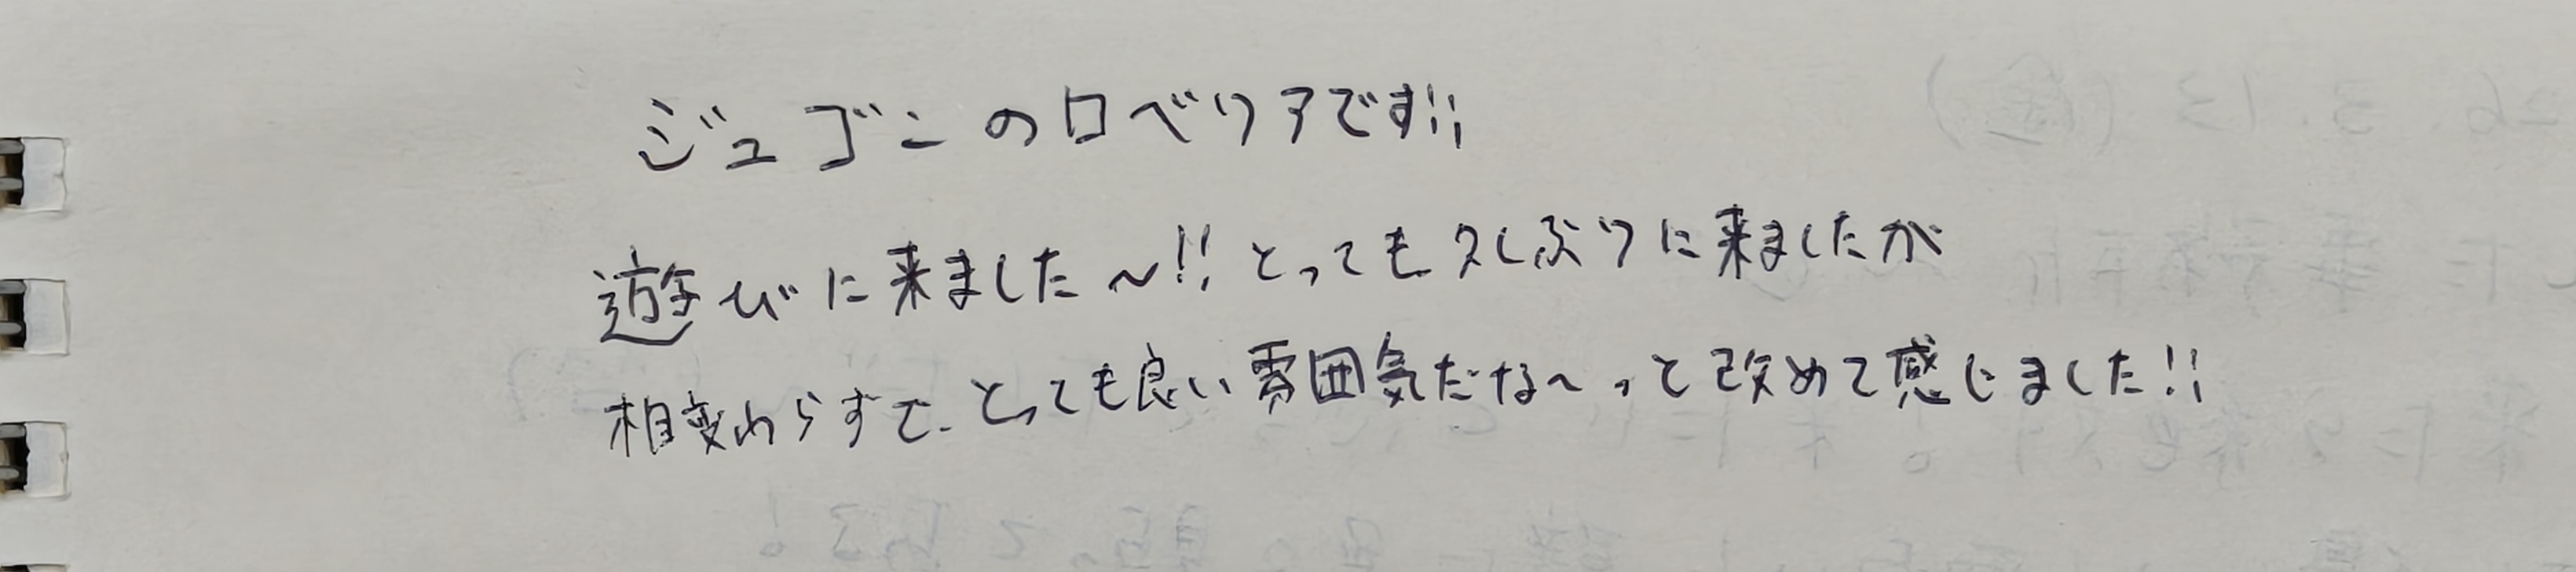 ジュゴンのロベリアです!!
遊びに来ました～!! とっても久しぶりに来ましたが
相変わらずで、とっても良い雰囲気だな～っと改めて感じました!!